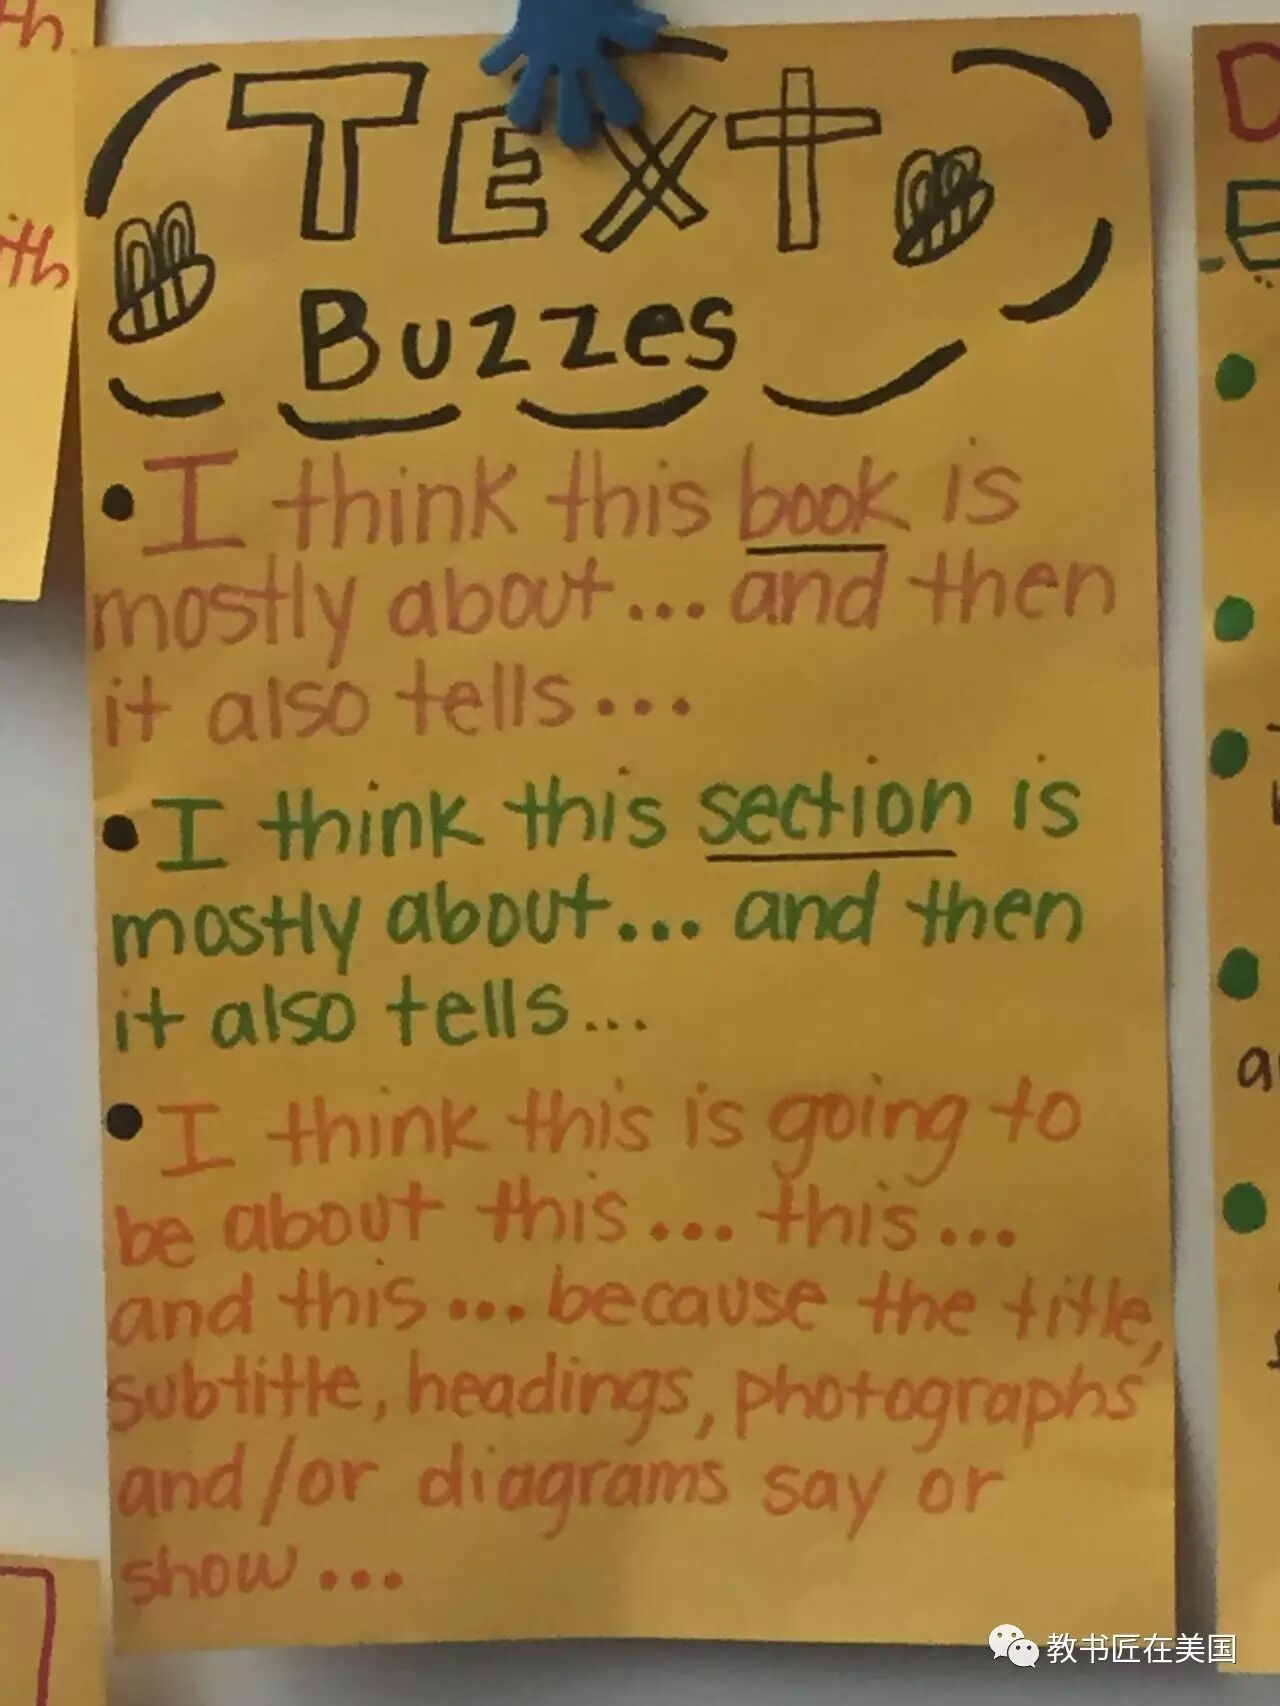 TEXT
Buzzes
• I think this book is
mostly about... and then
it also tells...
• I think this section is
mostly about... and then
it also tells...
• I think this is going to
be about this... this...
and this... because the title,
subtitle, headings, photographs
and/or diagrams say or
show...
th
ith
D
E
a
教书匠在美国